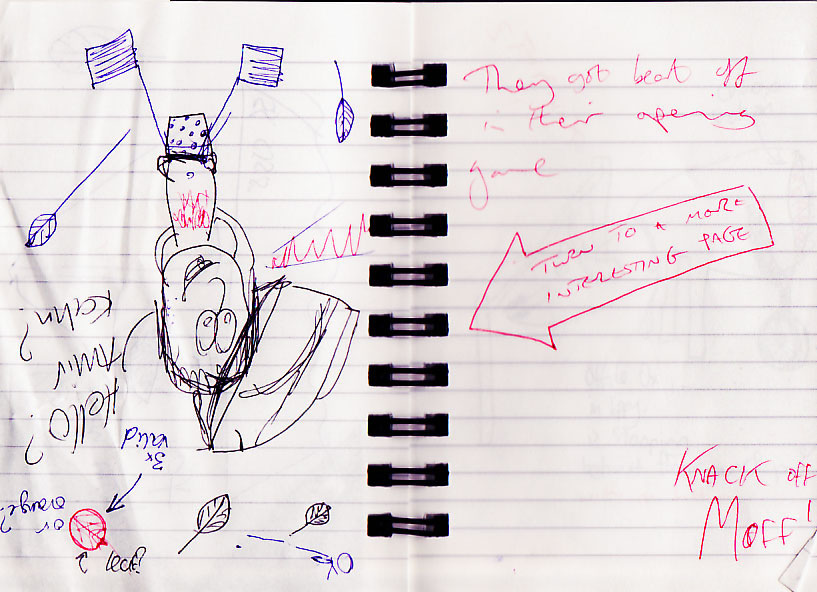 Hello?
AMIR
Kahn?
3x
valid
leaf?
or
orange?
They got beat off
in their opening
game
TURN TO A MORE
INTERESTING PAGE
KNACK OFF
MOFF!